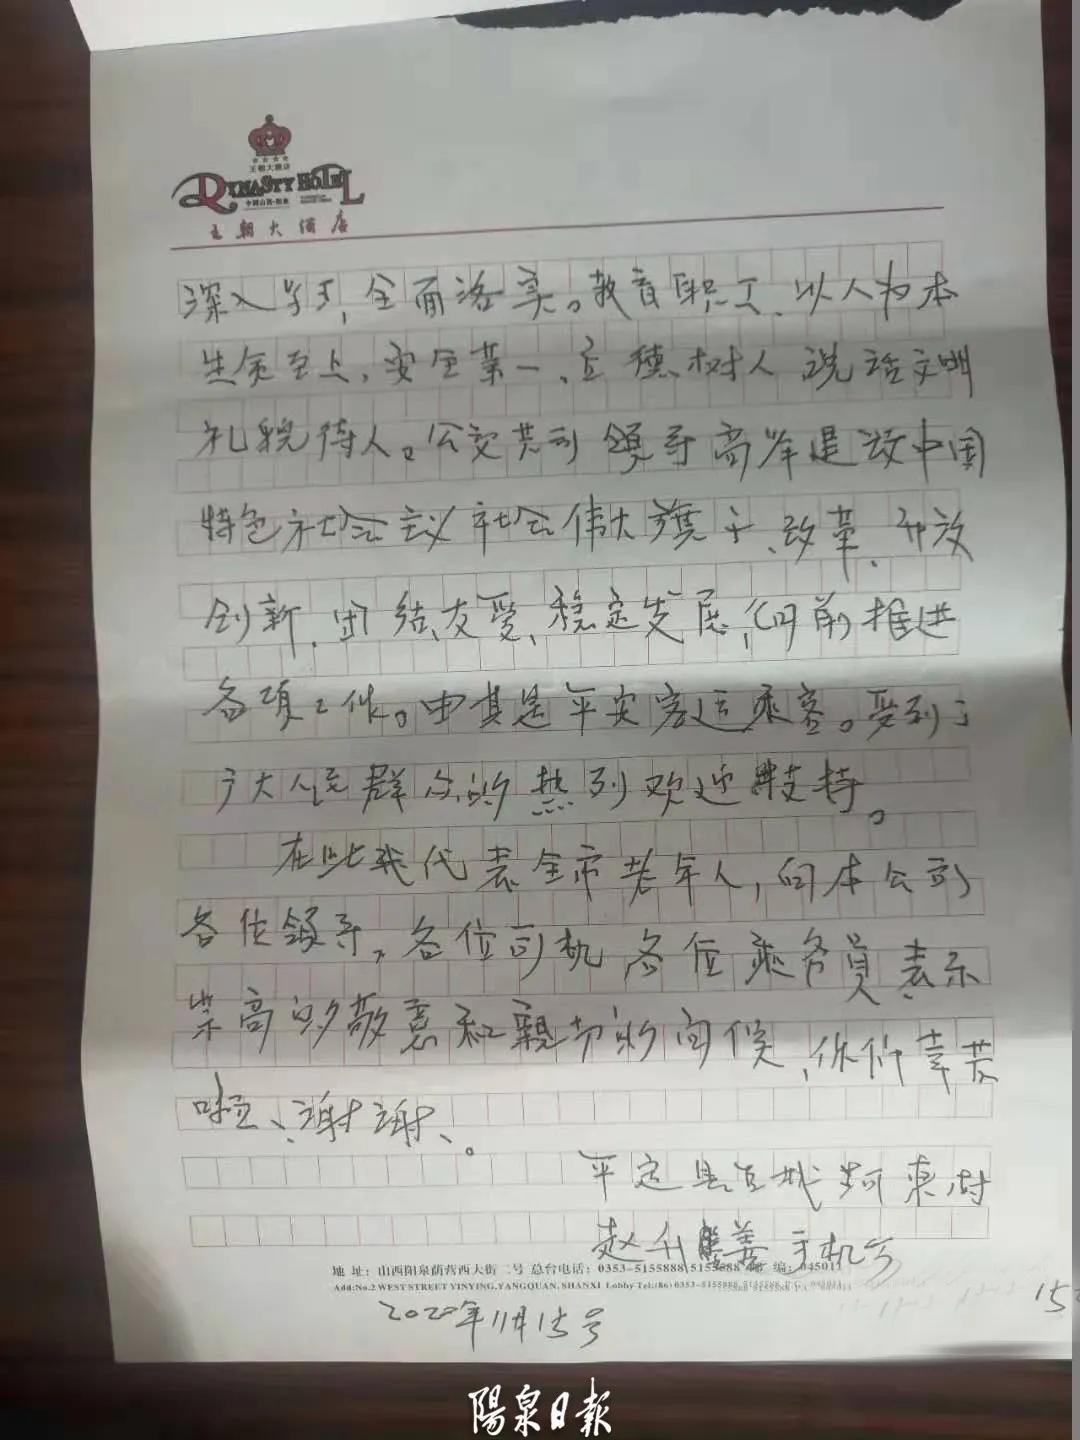 王朝大酒店
DYNASTY HOTEL
中国山西·阳泉
王朝大酒店
深入学习,全面落实。教育职工、以人为本
生命至上、安全第一、立德树人 说话文明
礼貌待人。公交公司领导高举建设中国
特色社会主义社会伟大旗子、改革、开放
创新、团结友爱、稳定发展,向前推进
各项工作。由其是平安客运乘客。受到了
广大人民群众的热列欢迎支持。
在此我代表全市老年人,向本公司
各位领导,各位司机 各位乘务员 表示
崇高的敬意和亲切的问候、你们辛苦
啦、谢谢、。
平定县 东村
赵 手机号
地 址:山西阳泉荫营西大街二号 总台电话:0353-5155888 5155588 邮 编:045011
Add:No.2 WEST STREET YINYING,YANGQUAN,SHANXI Lobby Tel:(86)0353-5155888
15
2020年11月15号
陽泉日報